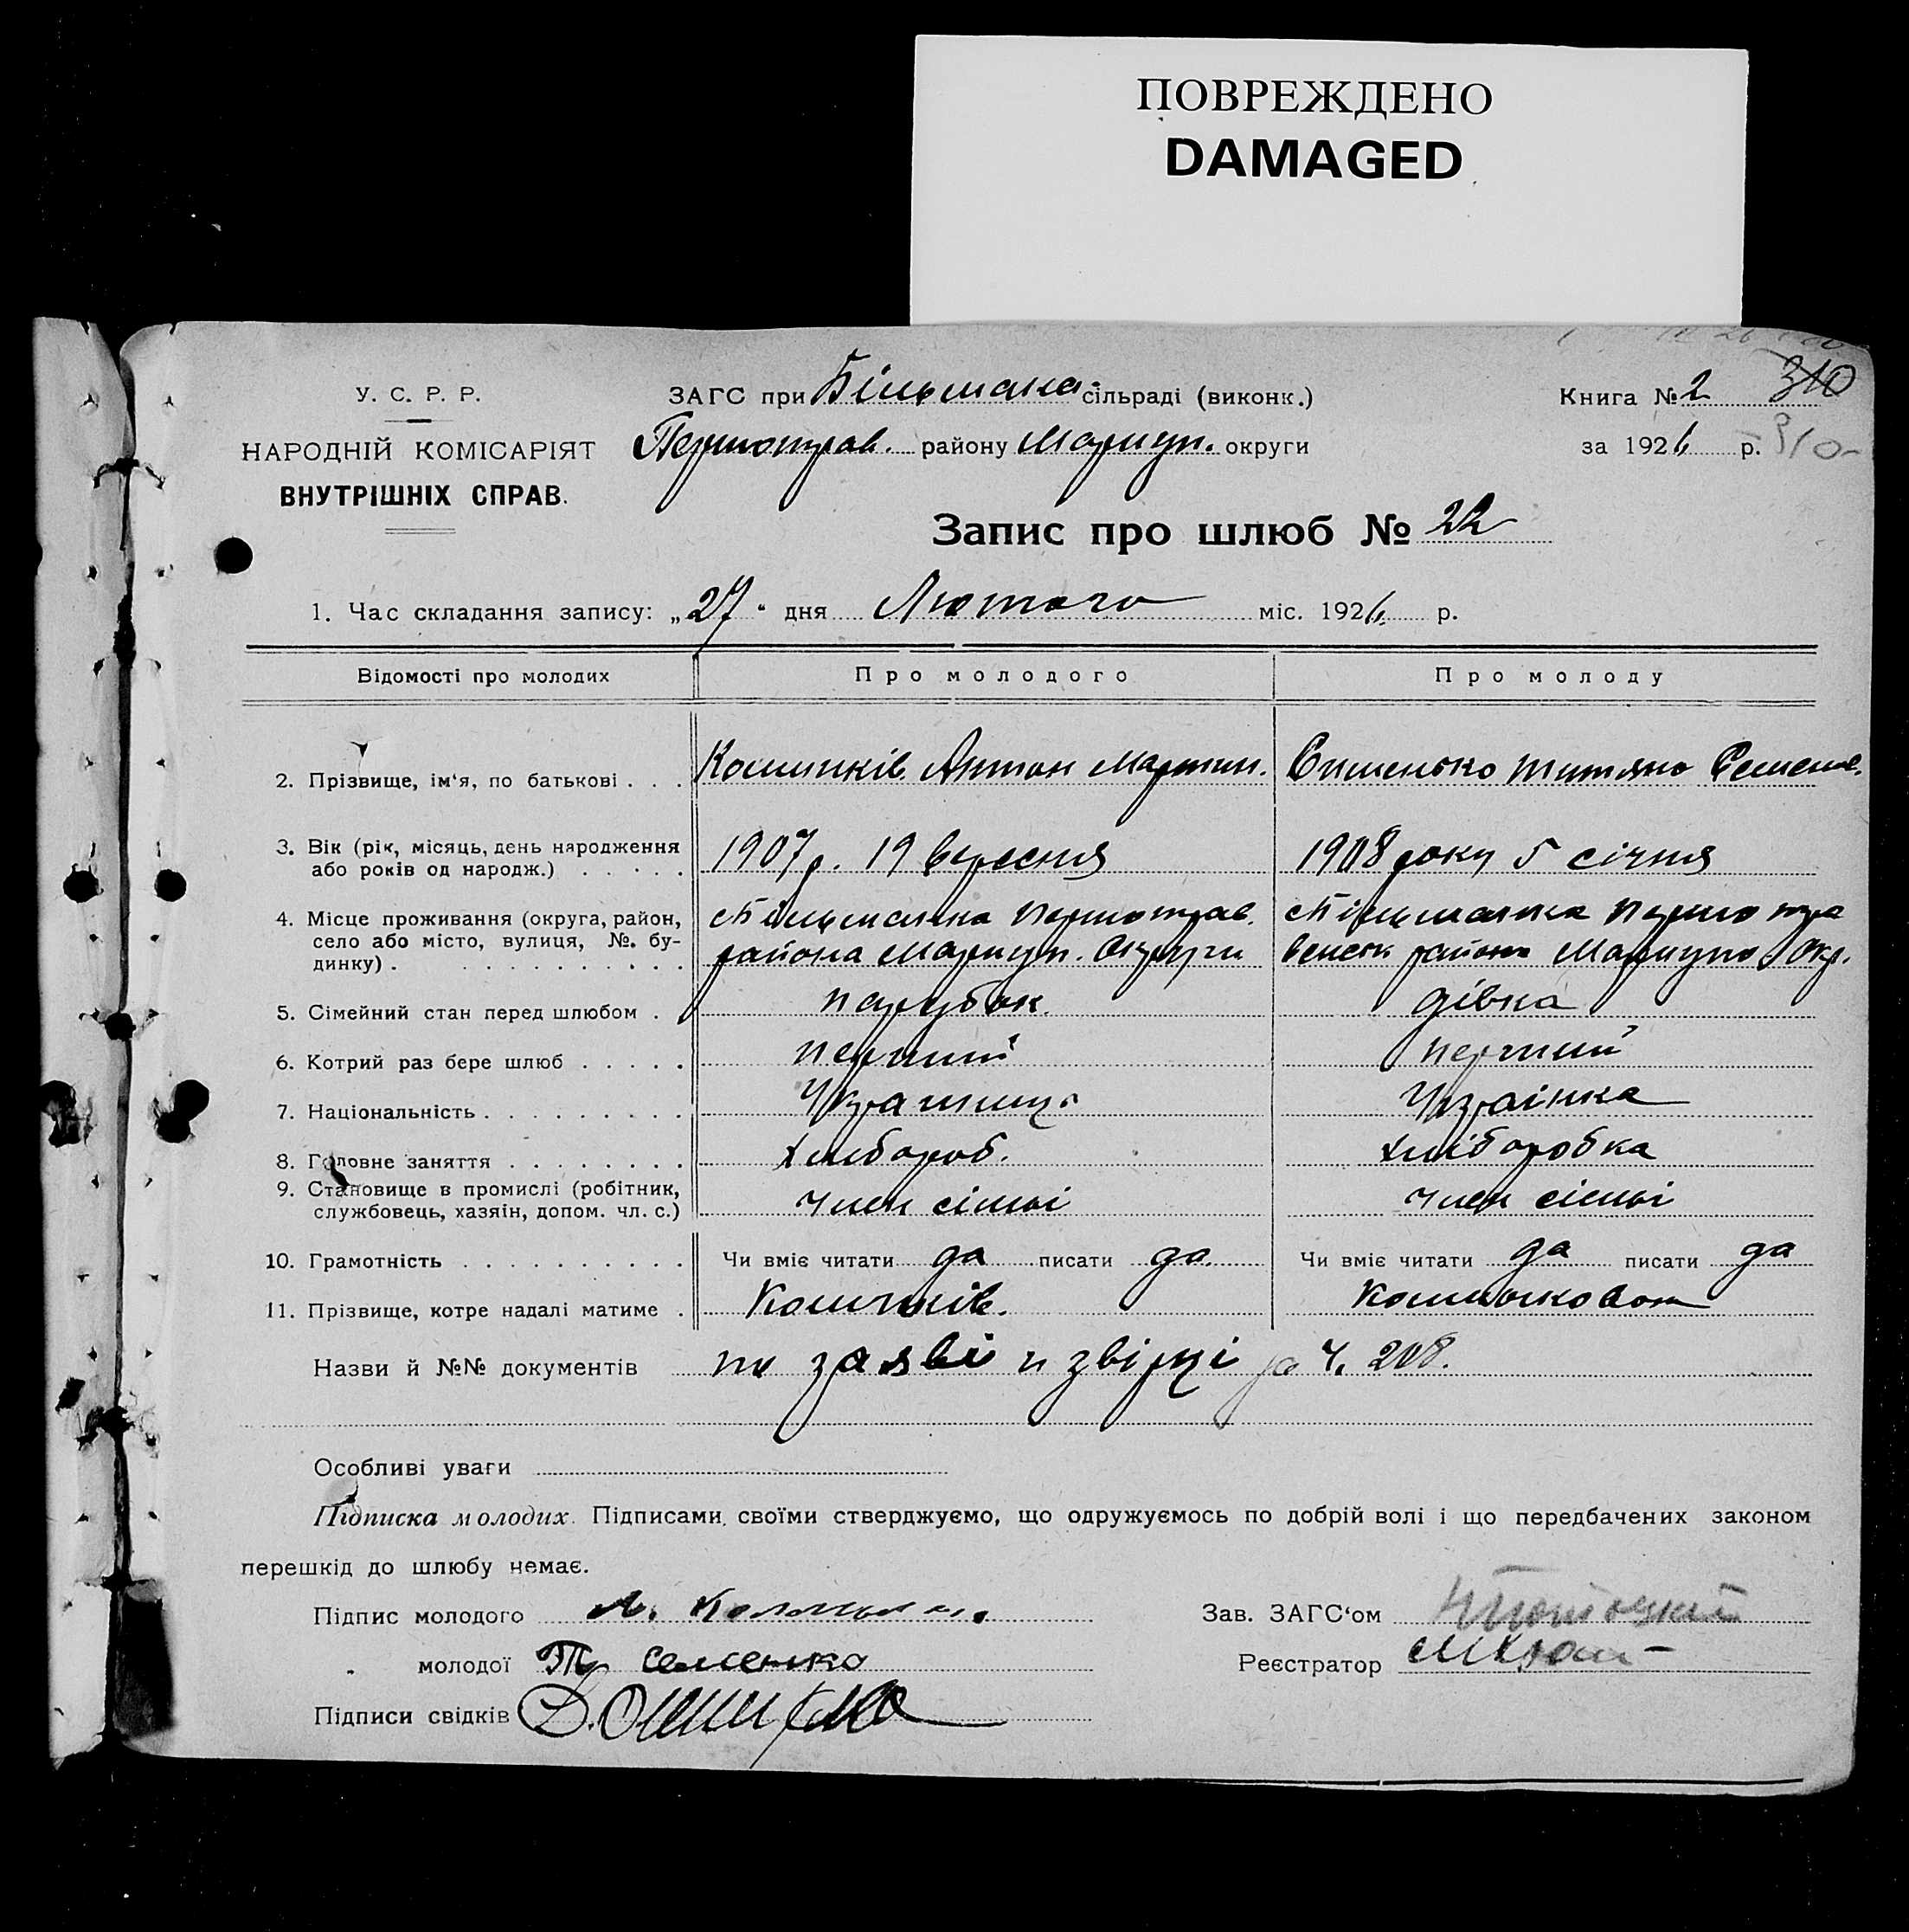 ПОВРЕЖДЕНО
DAMAGED
У. С. Р. Р.
НАРОДНІЙ КОМІСАРІЯТ
ВНУТРІШНІХ СПРАВ.
ЗАГС при Більмака- сільраді (виконк.)
Першотрав. району Маріуп. округи
Книга № 2 310
за 1926 р. 310
Запис про шлюб № 22
1. Час складання запису: „27“ дня Лютого міс. 1926 р.
Відомості про молодих Про молодого Про молоду
2. Прізвище, ім‘я, по батькові . . . Антон Мартин. Титяна Семенов.
3. Вік (рік, місяць, день народження або років од народж.) . . . . . 1907 р. 19 вересня 1908 року 5 січня
4. Місце проживання (округа, район, село або місто, вулиця, №. будинку) . Першотрав. района Маріуп. Округи района Маріупо Окр.
5. Сімейний стан перед шлюбом . парубок дівка
6. Котрий раз бере шлюб . . . . . перший перший
7. Національність . . . . . . . . . Українка
8. Головне заняття . . . . . . . . хлібороб. хліборобка
9. Становище в промислі (робітник, службовець, хазяїн, допом. чл. с.) член сімьі член сімьі
10. Грамотність . . . . . . . . . . Чи вміє читати да писати да. Чи вміє читати да писати да
11. Прізвище, котре надалі матиме .
Назви й №№ документів по заяві звірці за ч. 208.
Особливі уваги
Підписка молодих. Підписами своїми стверджуємо, що одружуємось по добрій волі і що передбачених законом
перешкід до шлюбу немає.
Підпис молодого
Зав. ЗАГС‘ом
молодої Семенко
Реєстратор
Підписи свідків